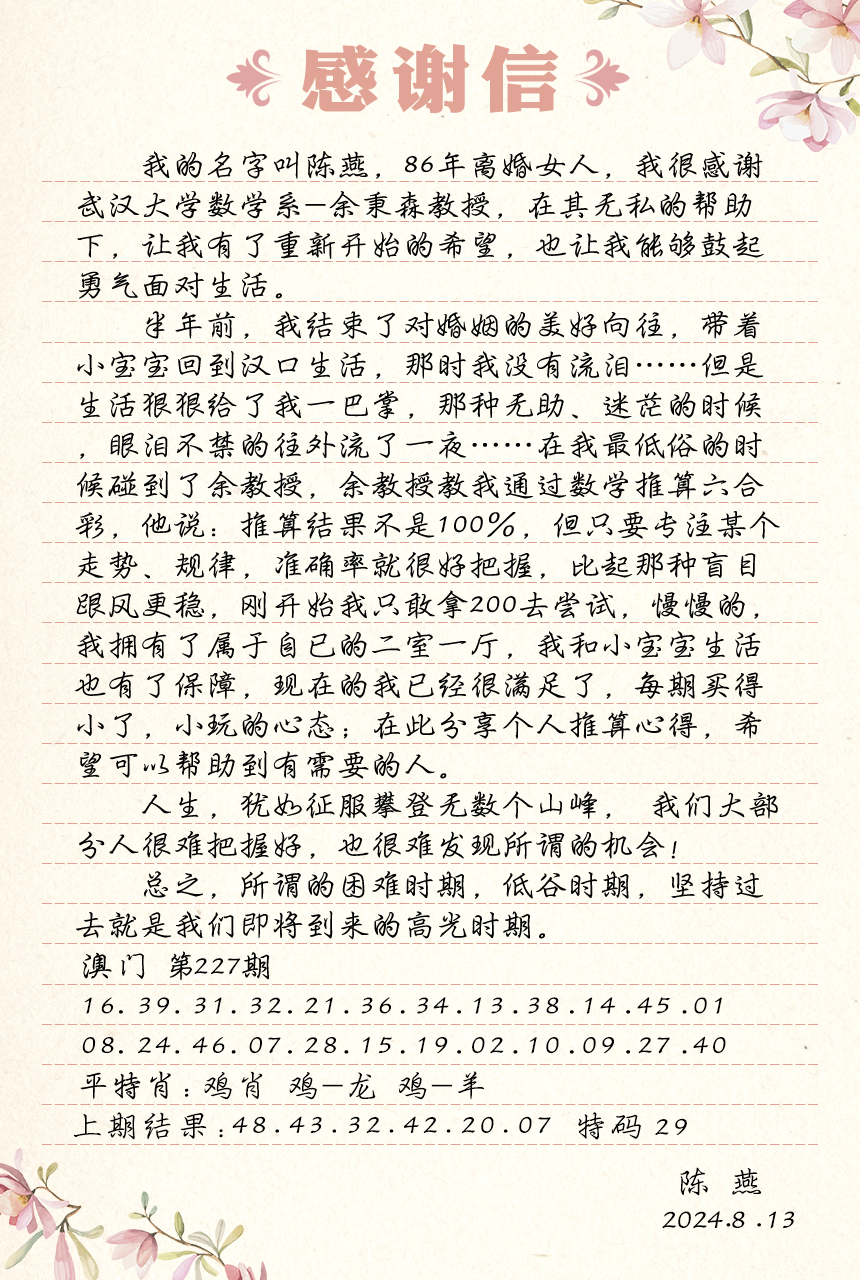 感谢信
我的名字叫陈燕，86年离婚女人，我很感谢
武汉大学数学系—余秉森教授，在其无私的帮助
下，让我有了重新开始的希望，也让我能够鼓起
勇气面对生活。
半年前，我结束了对婚姻的美好向往，带着
小宝宝回到汉口生活，那时我没有流泪……但是
生活狠狠给了我一巴掌，那种无助、迷茫的时候
，眼泪不禁的往外流了一夜……在我最低俗的时
候碰到了余教授，余教授教我通过数学推算六合
彩，他说：推算结果不是100%，但只要专注某个
走势、规律，准确率就很好把握，比起那种盲目
跟风更稳，刚开始我只敢拿200去尝试，慢慢的，
我拥有了属于自已的二室一厅，我和小宝宝生活
也有了保障，现在的我已经很满足了，每期买得
小了，小玩的心态；在此分享个人推算心得，希
望可以帮助到有需要的人。
人生，犹如征服攀登无数个山峰， 我们大部
分人很难把握好，也很难发现所谓的机会！
总之，所谓的困难时期，低谷时期，坚持过
去就是我们即将到来的高光时期。
澳门 第227期
16.39.31.32.21.36.34.13.38.14.45.01
08.24.46.07.28.15.19.02.10.09.27.40
平特肖：鸡肖 鸡—龙 鸡—羊
上期结果：48.43.32.42.20.07 特码 29
陈 燕
2024.8.13